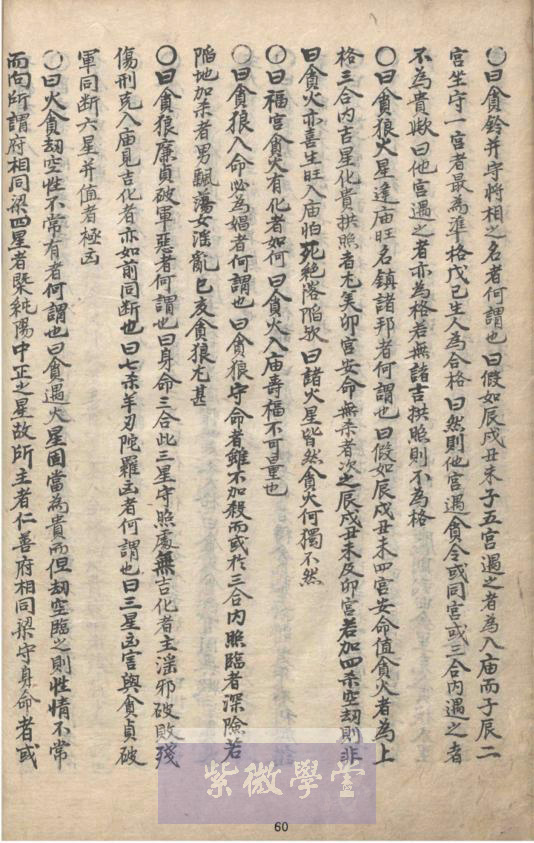 ○曰貪鈴并守將相之名者何謂也曰假如辰戌丑未子五宮遇之者為入庙而子辰二
宮坐守一宮者最為準格戊己生人為合格曰然則他宮遇貪令或同宮或三合內遇之者
不為貴歟曰他宮遇之者亦為格若無諸吉拱照則不為格
○曰貪狼火星逢庙旺名鎮諸邦者何謂也曰假如辰戌丑未四宮安命值貪火者為上
格三合內吉星化貴拱照者尤美卯宮安命無杀者次之辰戌丑未及卯宮若加四杀空劫則非
曰貪火亦喜生旺入庙怕死絕落陷欤曰諸火星皆然貪火何獨不然
○曰福宮貪火有化者如何曰貪火入庙壽福不可量也
○曰貪狼入命必為娼者何謂也曰貪狼守命者雖不加殺而或於三合內照臨者深險若
陷地加杀者男飄蕩女淫亂巳亥貪狼尤甚
○曰貪狼廉貞破軍惡者何謂也曰身命三合此三星守照處無吉化者主淫邪破敗殘
傷刑克入庙見吉化者亦如前同断也曰七杀羊刃陀羅凶者何謂也曰三星凶害與貪貞破
軍同断六星并值者極凶
○曰火貪劫空性不常有者何謂也曰貪遇火星固當為貴而但劫空臨之則性情不常
而向所謂府相同梁四星者槩純陽中正之星故所主者仁善府相同梁守身命者或
紫微學堂
60